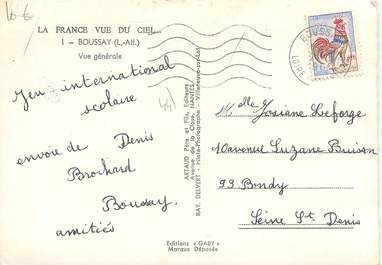 10 €
LA FRANCE VUE DU CIEL...
1 - BOUSSAY (L.-Atl.)
Vue générale
Jeu international
scolaire
envoie de Denis
Brochard
Boussay.
amitiés
44
ARTAUD Père et Fils, Editeurs
Avenue de la Close, NANTES
RAY. DELVERT - Pilote-Photographe - Villeneuve-sur-Lot
Editions « GABY »
Marque Déposée
BOUSSAY
LOIRE
Melle Josiane Leforge
10 avenue Suzane Buison
93 Bondy
Seine St Denis